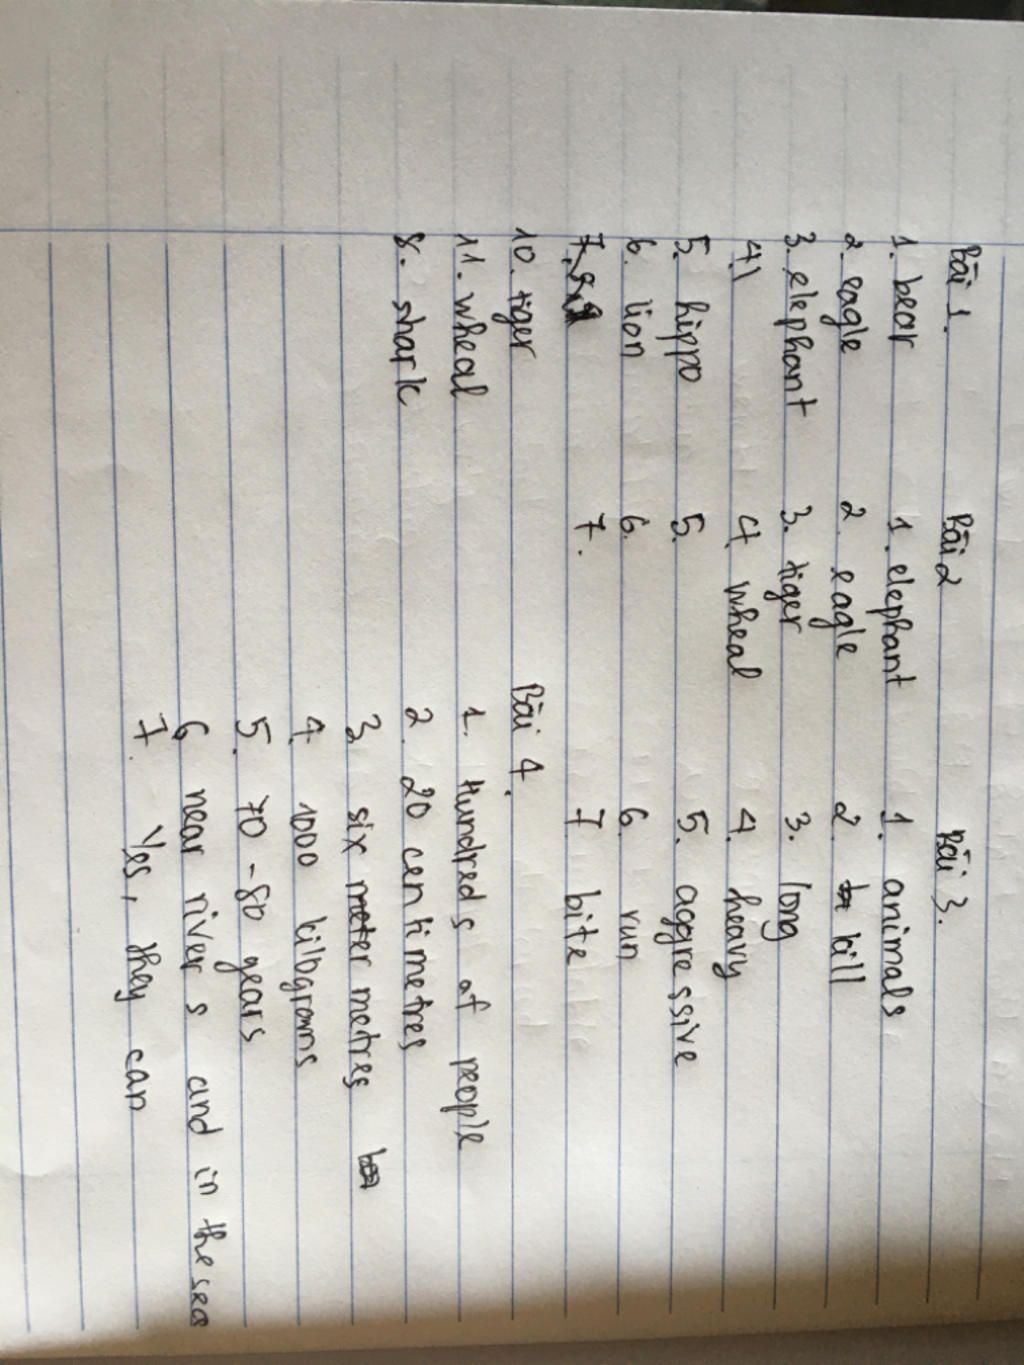 Bài 1.
1. bear
2. eagle
3. elephant
4.
5. hippo
6. lion
7.
10. tiger
11. wheal
8. shark
Bài 2
1. elephant
2. eagle
3. tiger
4. wheal
5.
6.
7.
Bài 3.
1. animals
2. kill
3. long
4. heavy
5. aggressive
6. run
7 bite
Bài 4.
1. Hundreds of people
2. 20 centimetres
3. six meter metres
4. 1000 kilograms
5. 70 - 80 years
6 near rivers and in the sea
7 Yes, they can